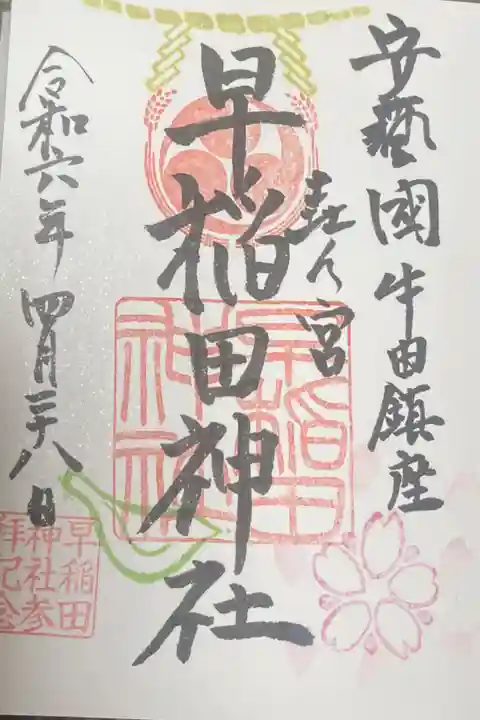 安藝國牛田鎮座
壵人宮
早稲田神社
早稲田神社
令和六年四月二十八日
早稲田
神社参
拝記念